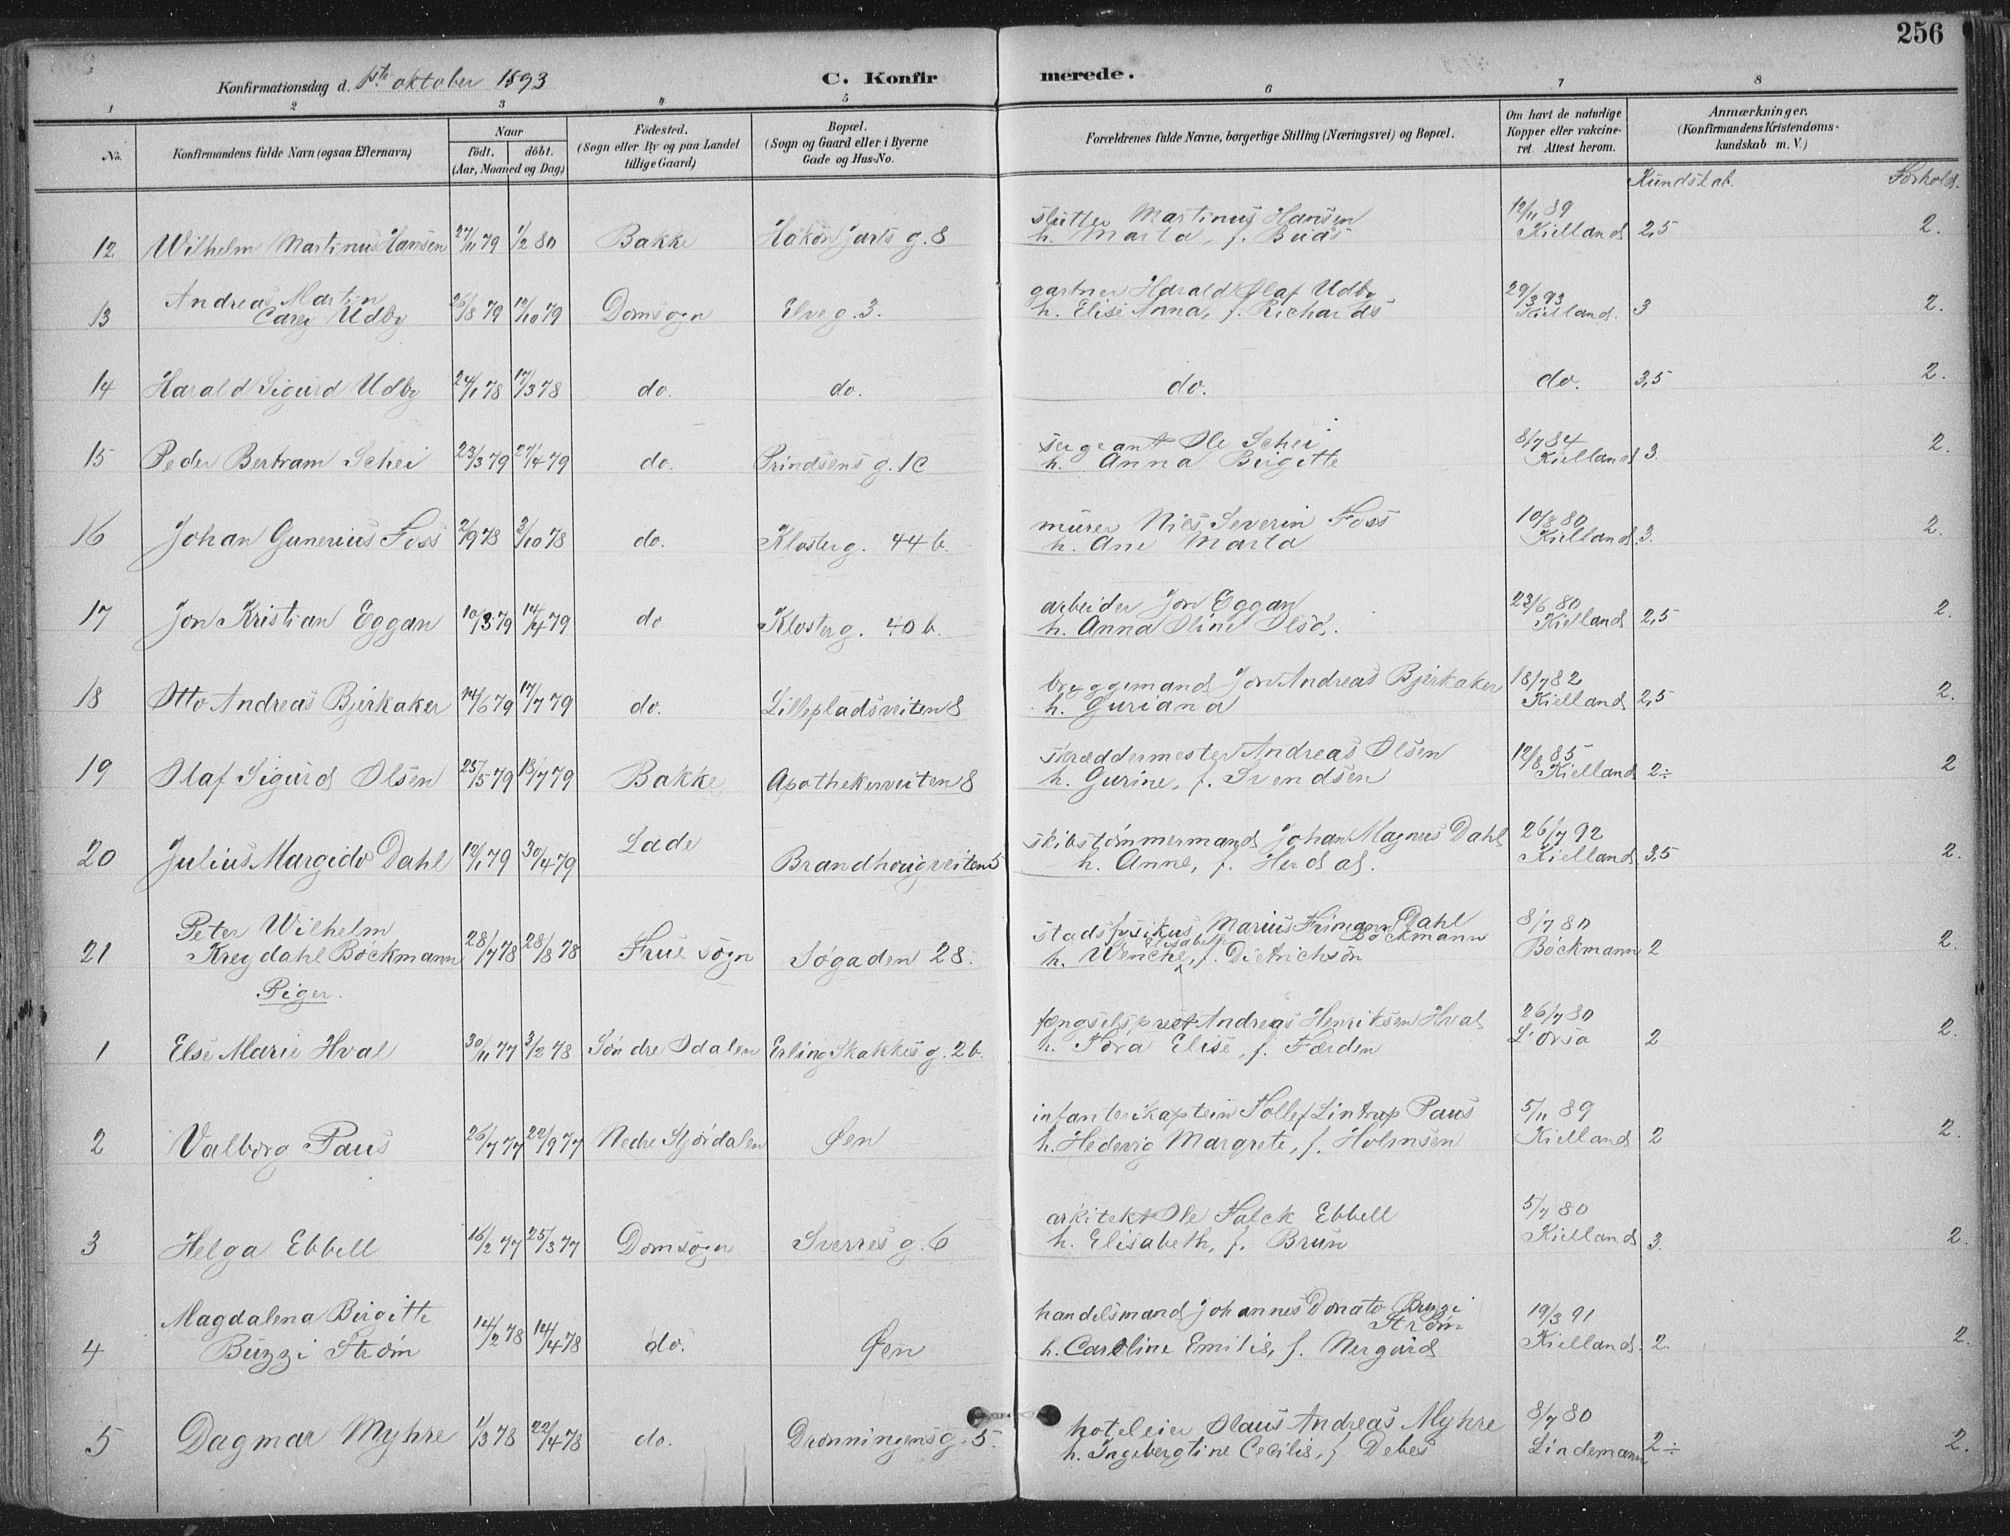 256
Konfirmationsdag d. 1ste oktober 1893
C. Konfir merede.
1 2 3 4 5 6 7 8
No.
Konfirmandens fulde Navn (ogsaa Efternavn)
Naar
födt. döbt.
(Aar, Maaned og Dag)
Födested.
(Sogn eller By og paa Landet
tillige Gaard)
Bopæl.
(Sogn og Gaard eller i Byerne
Gade og Hus-No.
Forældrenes fulde Navne, borgerlige Stilling (Næringsvei) og Bopæl.
Om havt de naturlige
Kopper eller vakcine-
ret. Attest herom.
Anmærkninger.
(Konfirmandens Kristendoms-
kundskab m. V.)
Kundskab. Forhold.
12 Wilhelm Martinus Hansen 27/11 79 1/2 80 Bakke Håkon Jarls g. 8
slutter Martinus Hansen
h. Marta, f. Buås
12/11 89
Kielland 2,5 2.
13 Andreas Martin
Carey Udby 26/8 79 12/10 79 Domsogn Elveg. 3.
gartner Harald Olaf Udby
h. Elise Anna, f. Richards
29/3 93
Kielland. 3 2.
14 Harald Sigurd Udby 24/1 78 17/3 78 do. do. do. do. 3,5 2.
15 Peder Bertram Schei 23/3 79 27/4 79 do. Prindsens g. 1c
sergeant Ole Schei
h. Anna Birgitte
8/7 84
Kielland 3. 2.
16 Johan Gunerius Foss 2/9 78 3/10 78 do. Klosterg. 44 b.
murer Nils Severin Foss
h. Ane Marta
10/8 80
Kielland. 3. 2.
17 Jon Kristian Eggan 10/3 79 14/4 79 do Klosterg. 40 b.
arbeider Jon Eggan
h. Anna Oline Olsd.
23/6 80
Kielland 2,5 2.
18 Otto Andreas Bjerkaker 14/6 79 17/7 79 do. Lillepladsveiten 8
bryggemand Jon Andreas Bjerkaker
h. Guriana
18/7 82
Kielland 2,5 2.
19 Olaf Sigurd Olsen 25/5 79 13/7 79 Bakke Apothekerveiten 8
skræddermester Andreas Olsen
h. Gurine, f. Svendsen
12/8 85
Kielland 2÷ 2
20 Julius Margido Dahl 12/1 79 30/4 79 Lade Brandhougveiten 5
skibstømmermand Johan Magnus Dahl
h. Anne, f. Herdal.
26/7 92
Kielland 3,5 2.
21 Peter Wilhelm
Kreydahl Böckmann 28/7 78 28/8 78 Frue sogn Søgaden 28.
stadsfysikus Marius Frimann Dahl
Böckmann
h. Wenche Elisabeth, f. Dietrichson
8/7 80
Böckmann 2 2.
Piger.
1 Else Marie Hval 30/11 77 3/2 78 Søndre Odalen Erling Skakkes g. 2 b.
fængselsprest Andreas Henriksen Hval
h. Tora Elise, f. Færden
26/7 80
2 2.
2 Valborg Paus 26/7 77 22/9 77 Nedre Stjørdalen Øen
infanterikaptein Tollef Lintrup Paus
h. Hedevig Margrete, f. Holmsen
5/11 89
Kielland 2 2.
3 Helga Ebbell 16/2 77 25/3 77 Domsogn Sverres g. 6
arkitekt Ole Falck Ebbell
h. Elisabeth, f. Brun
5/7 80
Kielland 3. 2.
4 Magdalena Birgitte
Buzzi Strøm 14/2 78 14/4 78 do. Øen
handelsmand Johannes Donato Buzzi
Strøm
h. Caroline Emilie, f. Nergård
19/3 91
Kielland. 2. 2.
5 Dagmar Myhre 1/3 78 22/4 78 do. Dronningensg. 5.
hoteleier Olaus Andreas Myhre
h. Ingebergtine Cecilie, f. Debes
8/7 80
Lindemann 2÷ 2.